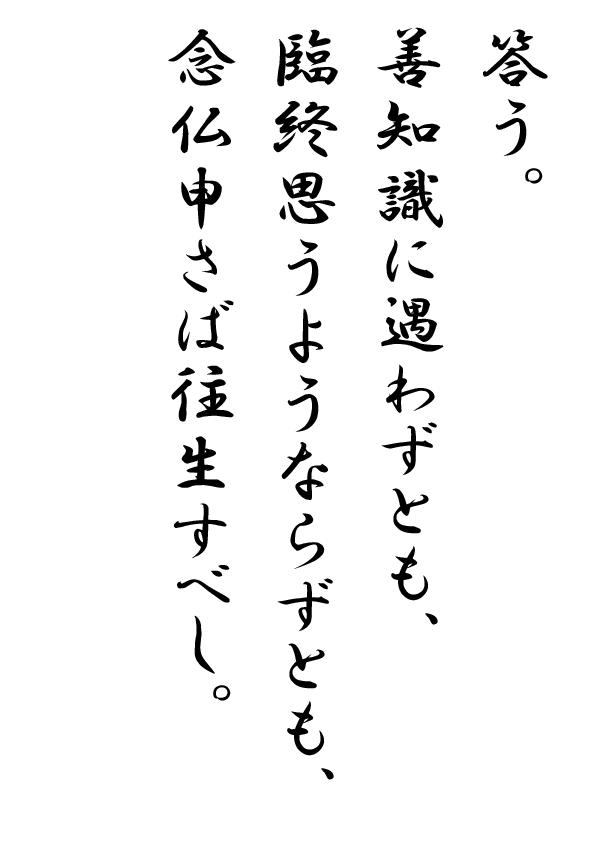 答う。
善知識に遇わずとも、
臨終思うようならずとも、
念仏申さば往生すべし。